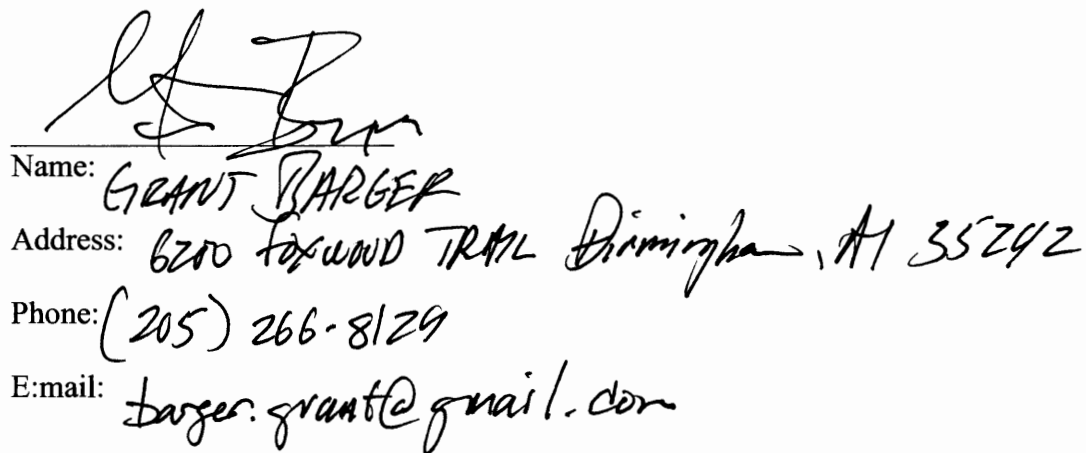 Name: GRANT BARGER
Address: 6200 FOXWOOD TRAIL Birmingham, Al 35242
Phone: (205) 266-8129
E:mail: barger.grant@gmail.com